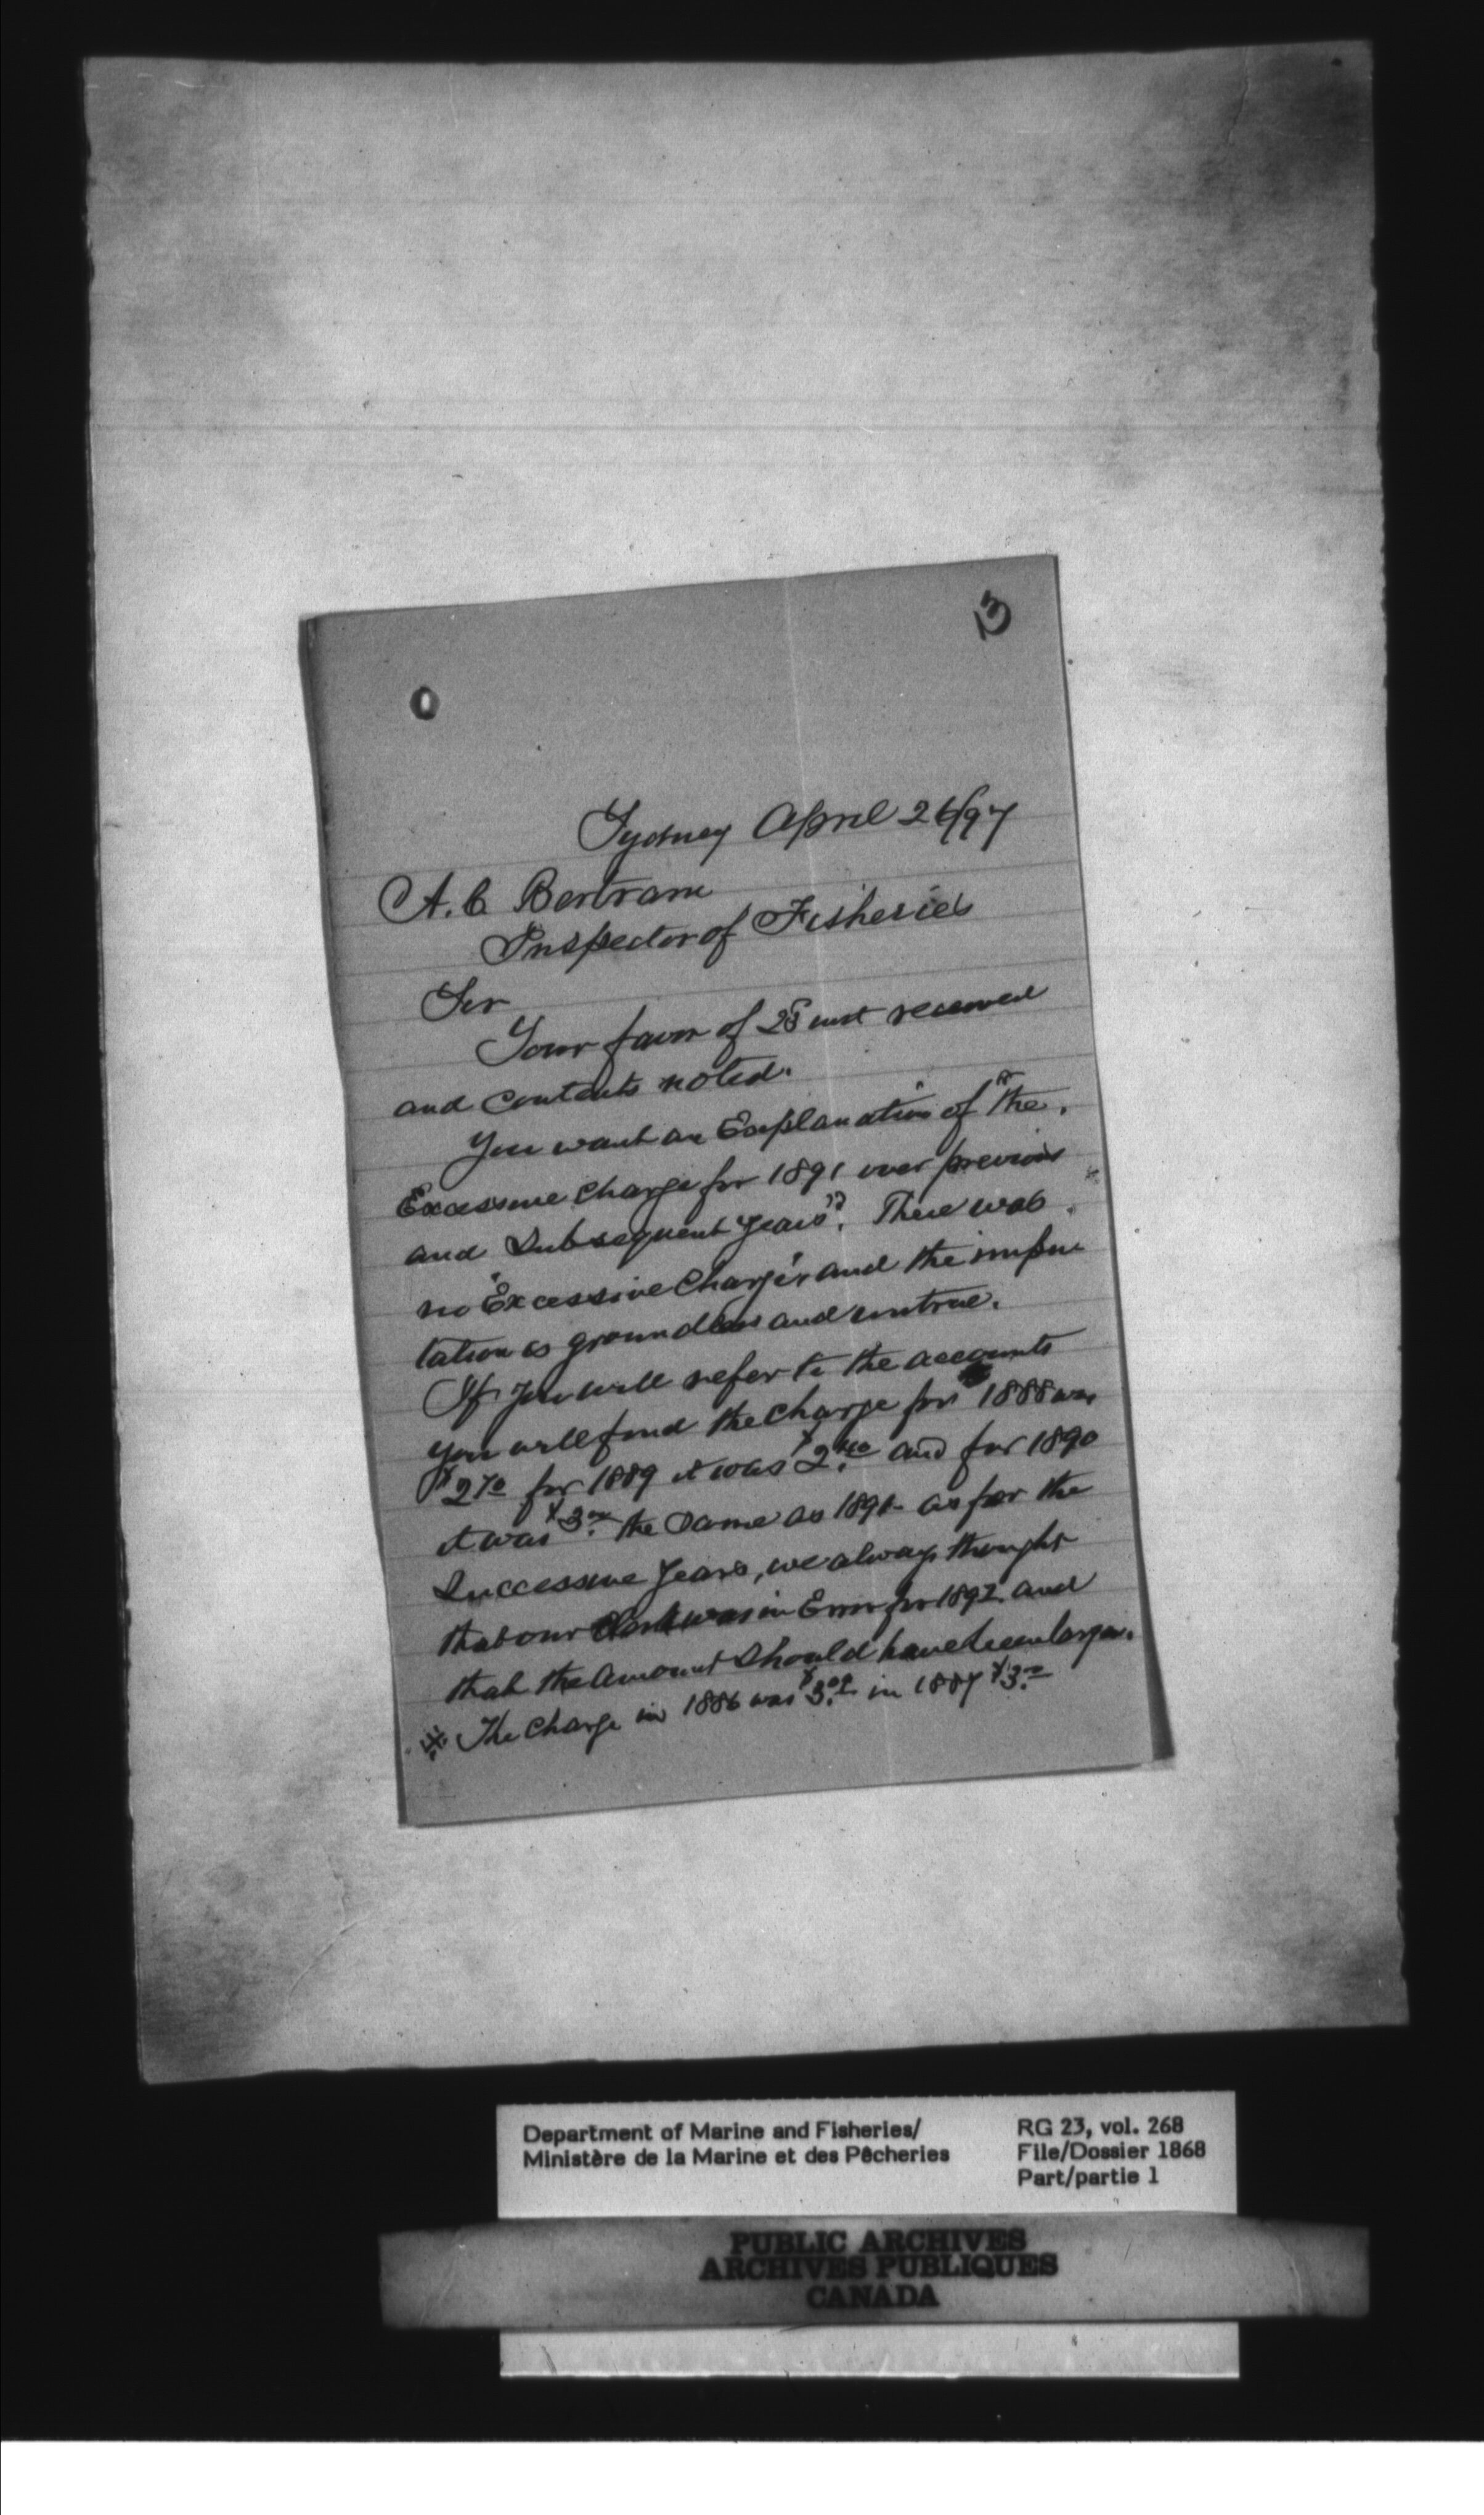 13
Sydney April 26/97
A. C. Bertram
Inspector of Fisheries
Sir
Your favor of 25 inst received
and contents noted.
You want an Explanation of "the
Excessive charge for 1891 over previous
and Subsequent years". There was
no "Excessive Charge" and the impu
tation is groundless and untrue.
If you will refer to the accounts
you will find the charge for 1888 was
$2 70 for 1889 it was $2. 40 and for 1890
it was $3. 00 the Same as 1891 – as for the
Successive years, we always thought
that our Clerk was in Error for 1892 and
that the amount Should have been larger.
The charge in 1886 was $3. 00 in 1887 $3. 00
Department of Marine and Fisheries/
Ministère de la Marine et des Pêcheries
RG 23, vol. 268
File/Dossier 1868
Part/partie 1
PUBLIC ARCHIVES
ARCHIVES PUBLIQUES
CANADA